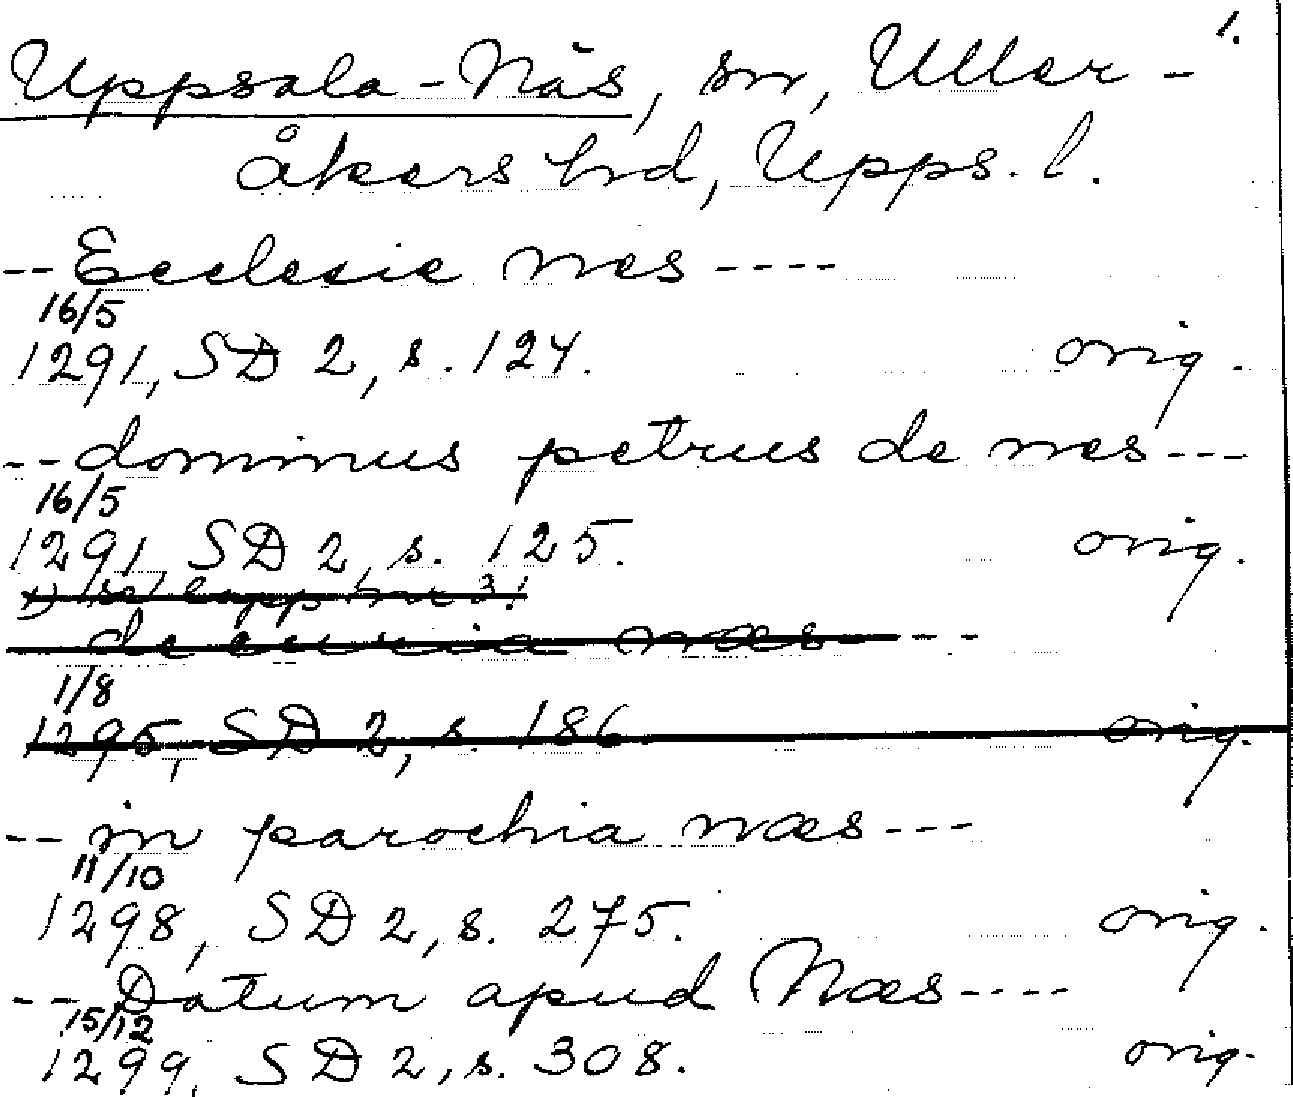 1.
Uppsala-Näs, sn, Uller-
åkers hd, Upps. l.
-- Ecclesie nes ----
16/5
1291, SD 2, s. 124. orig.
-- dominus petrus de nes ---
16/5
1291, SD 2, s. 125. orig.
lapp nr 3!
de curia næs ---
1/8
1295, SD 2, s. 186 orig.
-- in parochia næs ---
11/10
1298, SD 2, s. 275. orig.
-- Datum apud Næs ----
15/12
1299, SD 2, s. 308. orig.